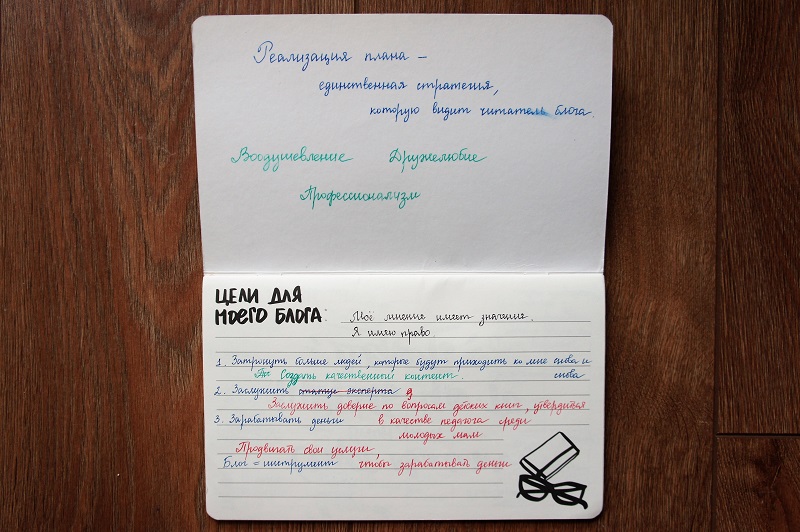 Реализация плана –
единственная стратегия,
которую видит читатель блога.
Воодушевление Дружелюбие
Профессионализм
ЦЕЛИ ДЛЯ
МОЕГО БЛОГА: Моё мнение имеет значение.
Я имею право.
1. Затронуть больше людей, которые будут приходить ко мне снова и
Создать качественный контент снова
2. Заслужить статус эксперта д
Заслужить доверие по вопросам детских книг, утвердиться
3. Зарабатывать деньги в качестве педагога среди
молодых мам
Продвигать свои услуги,
Блог = инструмент чтобы зарабатывать деньги